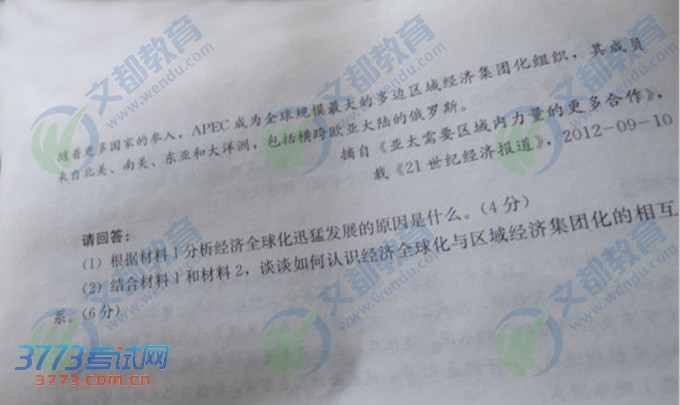 随着更多国家的参入，APEC成为全球规模最大的多边区域经济集团化组织，其成员
来自北美、南美、东亚和大洋洲，包括横跨欧亚大陆的俄罗斯。
摘自《亚太需要区域内力量的更多合作》，
载《21世纪经济报道》，2012-09-10
请回答：
(1) 根据材料1分析经济全球化迅猛发展的原因是什么。(4分)
(2) 结合材料1和材料2，谈谈如何认识经济全球化与区域经济集团化的相互
系。(6分)
文都教育
www.wendu.com
文都教育
www.wendu.com
文都教育
www.wendu.com
文都教育
www.wendu.com
文都教育
www.wendu.com
3773考试网
3773.com.cn